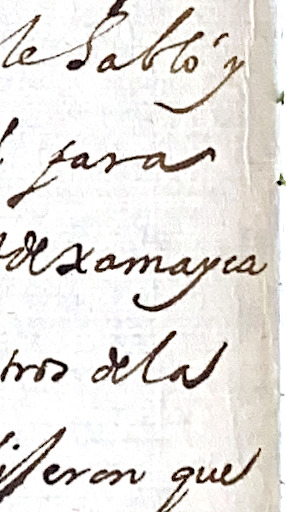 le habló y
para
de xamayca
tros de la
dijeron que